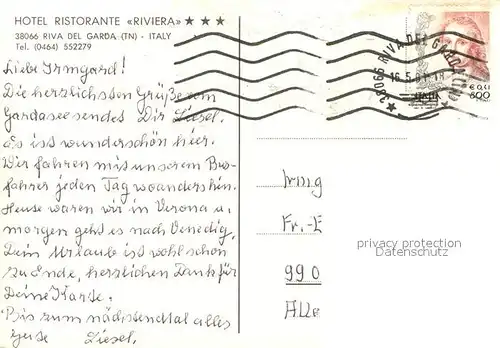 HOTEL RISTORANTE «RIVIERA» ★★★
38066 RIVA DEL GARDA (TN) - ITALY
Tel. (0464) 552279
Liebe Irmgard!
Die herzlichsten Grüße vom
Gardasee sendet Dir Liesel.
Es ist wunderschön hier.
Wir fahren mit unserem Bus-
fahrer jeden Tag woanders hin.
Heute waren wir in Verona u.
morgen geht es nach Venedig.
Dein Urlaub ist wohl schon
zu Ende, herzlichen Dank für
Deine Karte.
Bis zum nächstenmal alles
Gute Liesel.
38066 RIVA DEL GARDA (TN)
16.5.
ITALIA
800
Irmg
Fr.-E
990
Alle
privacy protection
Datenschutz